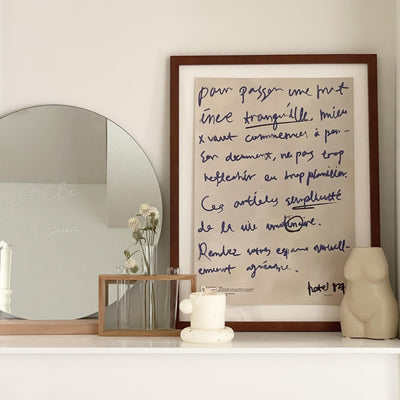 pour passer une mat
inée tranquille, mieu
x vaut commencer à pen-
ser doucement, ne pas trop
réfléchir ou trop planifier.
Ces articles simplicité
de la vie
Rendez votre espace naturell-
ement agréable.
hotel 827